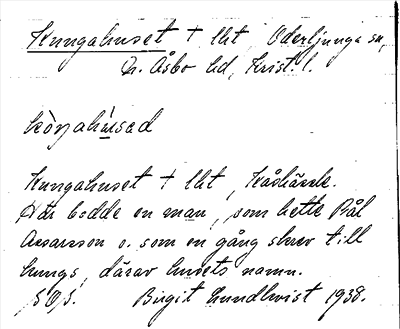 Kungahuset † lht, Oderljunga sn,
N. Åsbo hd, Krist. l.
kòŋahúsəd
Kungahuset † lht,
Där bodde en man, som hette Pål
Assarsson o. som en gång skrev till
kungs, därav husets namn.
S.O.S. Birgit Lundkvist 1938.